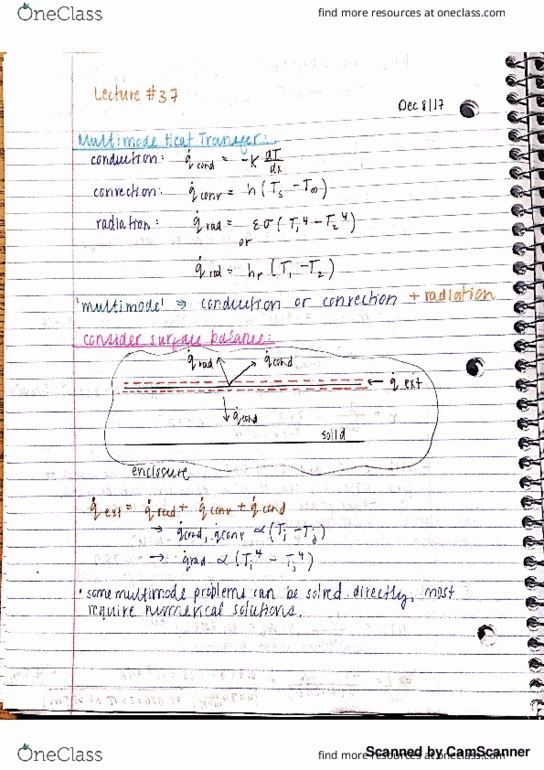 OneClass
find more resources at oneclass.com
Lecture #37
Dec 8/17
Multimode Heat Transfer:
conduction: q̇cond = -K dT/dx
convection: q̇conv = h(Ts - T∞)
radiation: q̇rad = εσ(T₁⁴ - T₂⁴)
or
q̇rad = hr (T₁ - T₂)
'multimode' ⇒ conduction or convection + radiation
consider surface balance:
q̇rad q̇cond
q̇ext
q̇cond
solid
enclosure
q̇ext = q̇rad + q̇conv + q̇cond
→ q̇cond, q̇conv ∝ (Ti - Tj)
→ q̇rad ∝ (Ti⁴ - Tj⁴)
• some multimode problems can be solved directly, most
require numerical solutions.
OneClass
find more resources at oneclass.com
Scanned by CamScanner